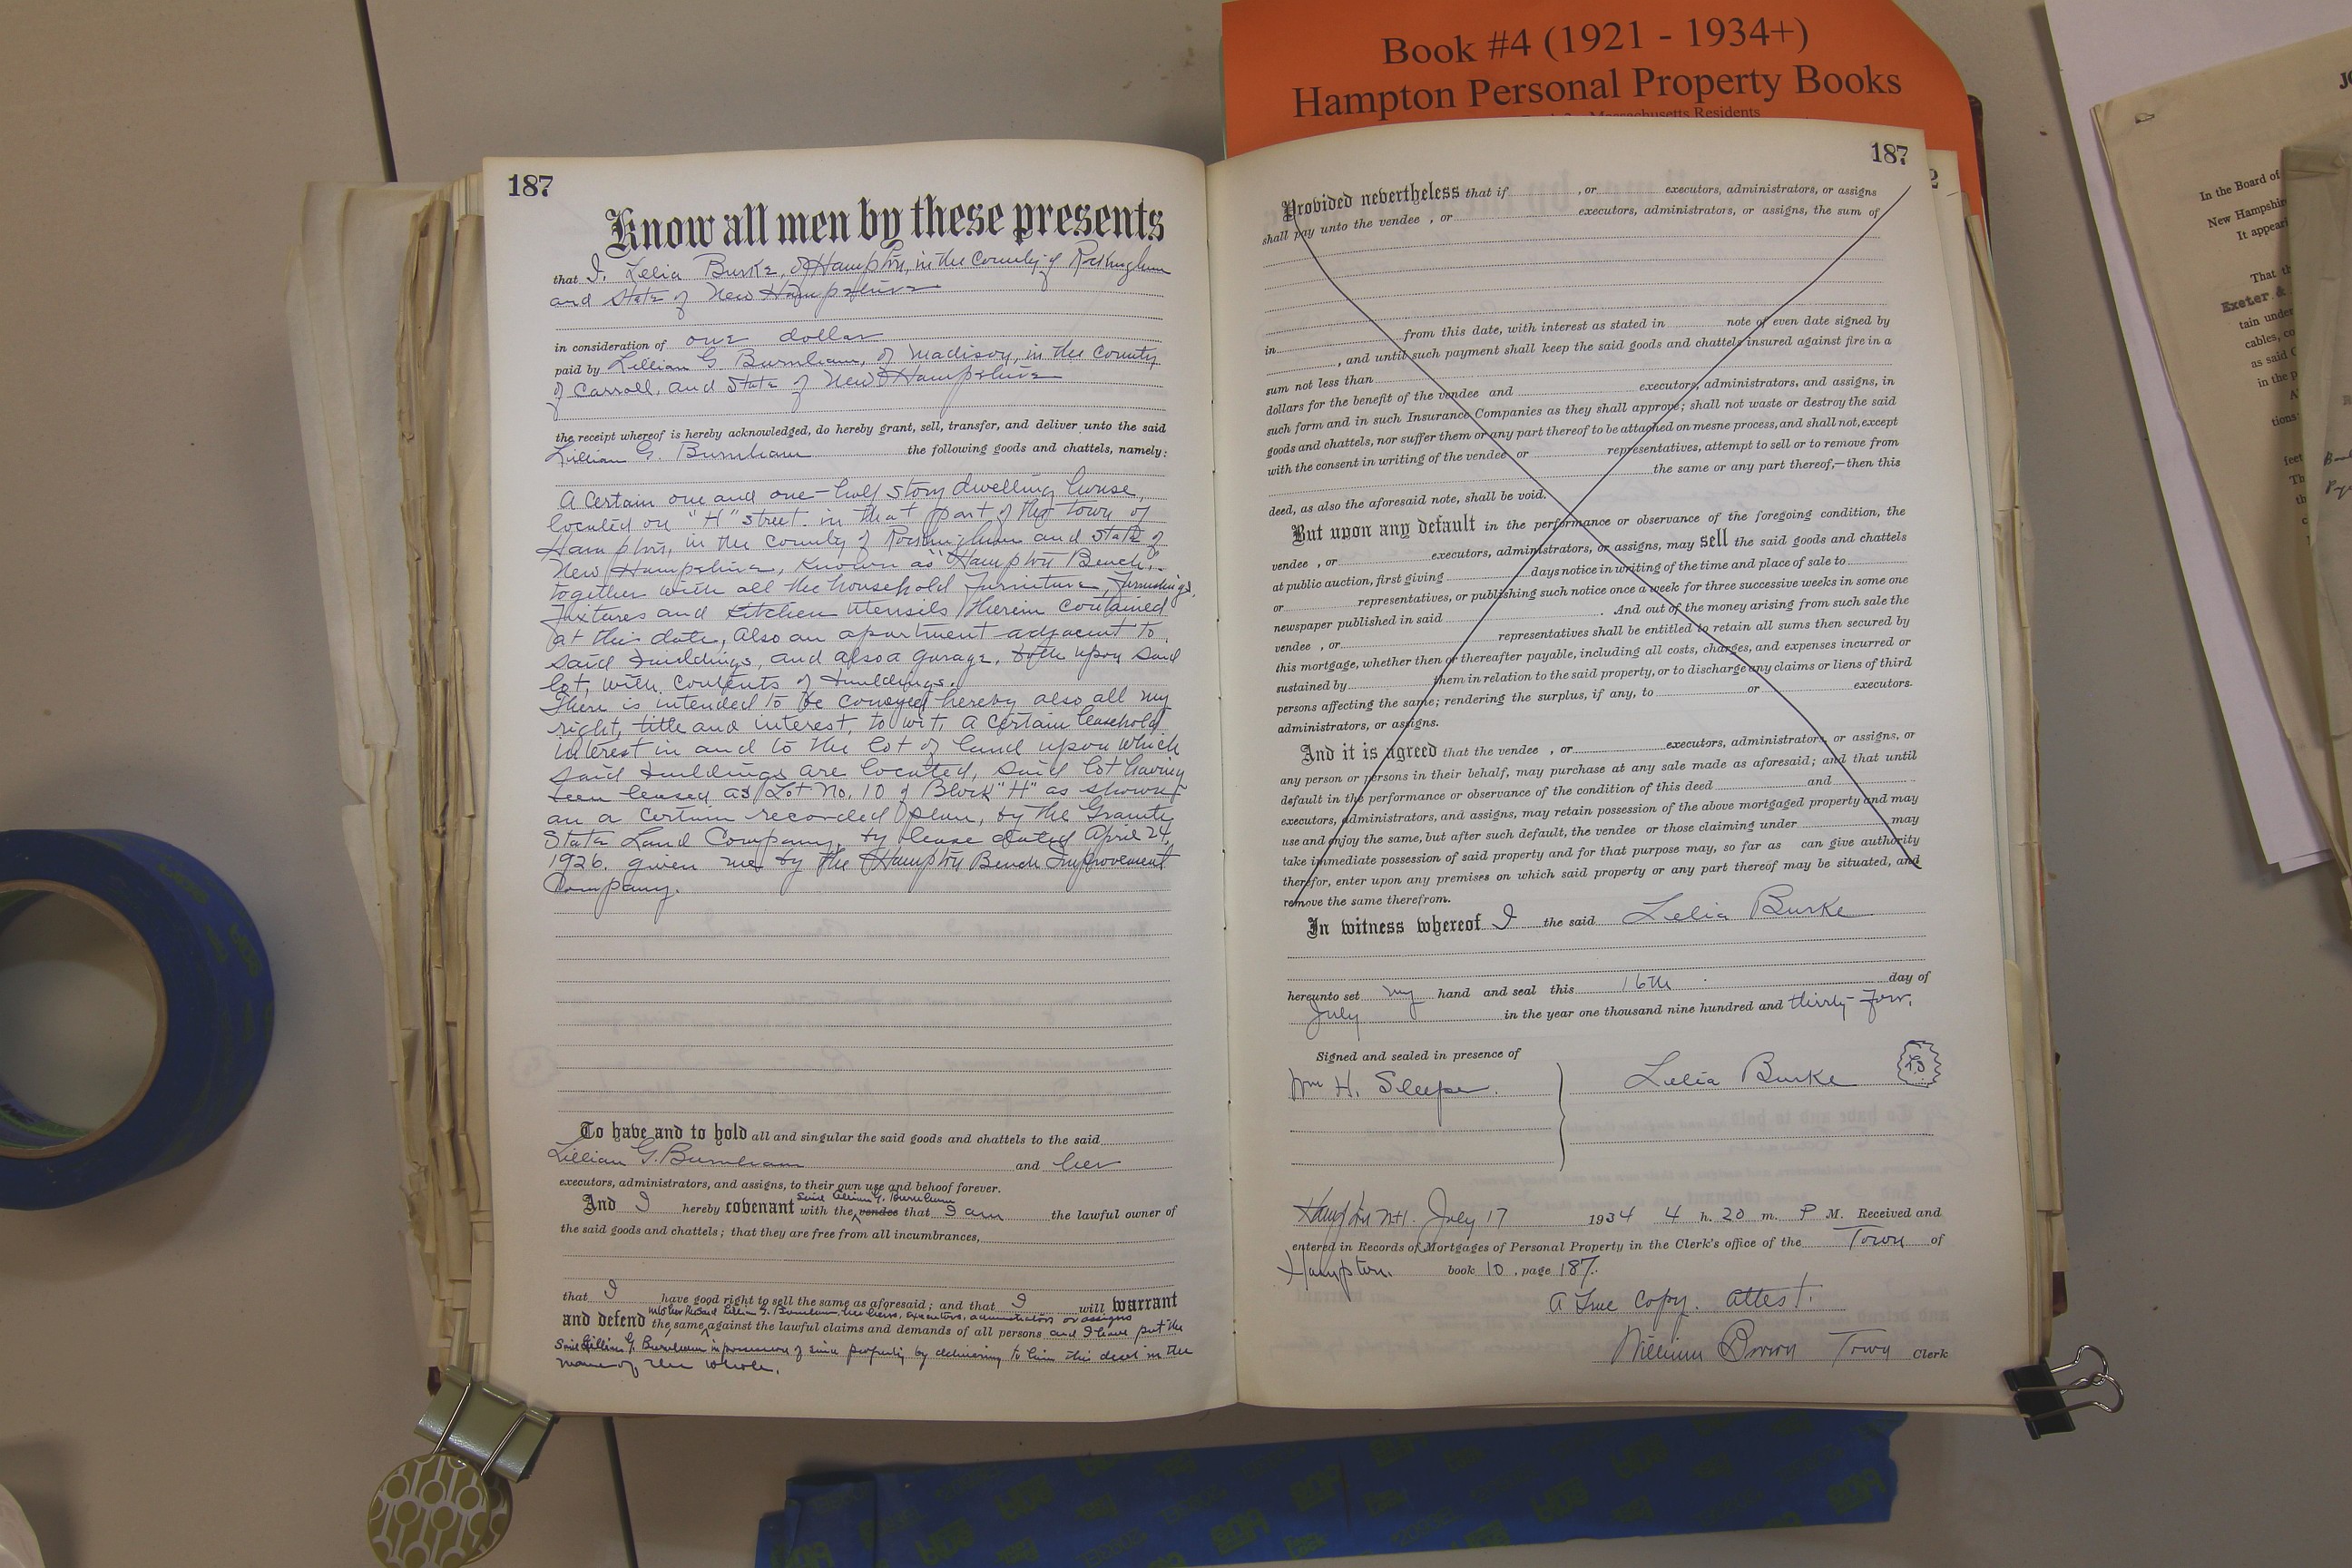 Book #4 (1921 - 1934+)
Hampton Personal Property Books
Massachusetts Residents
187
Know all men by these presents
that I, Lelia Burke, of Hampton, in the County of Rockingham
and State of New Hampshire
in consideration of one dollar
paid by Lillian G Burnham, of Madison, in the County
of Carroll, and State of New Hampshire
the receipt whereof is hereby acknowledged, do hereby grant, sell, transfer, and deliver unto the said
Lillian G. Burnham the following goods and chattels, namely:
A Certain one and one-half story dwelling house,
located on "H" street. in that part of the town of
Hampton, in the County of Rockingham and State of
New Hampshire, known as "Hampton Beach",
together with all the household furniture, furnishings,
fixtures and kitchen utensils therein contained
at this date, Also an apartment adjacent to
said buildings, and also a garage, both upon said
lot, with contents of buildings.
There is intended to be conveyed hereby also all my
right, title and interest, to wit, a certain leasehold
interest in and to the lot of land upon which
said buildings are located, said lot having
been leased as Lot No. 10 of Block "H" as shown
on a certain recorded plan, by the Granite
State Land Company, by lease dated April 24,
1926. given me by the Hampton Beach Improvement
Company.
To have and to hold all and singular the said goods and chattels to the said
Lillian G. Burnham and her
executors, administrators, and assigns, to their own use and behoof forever.
said Lillian G. Burnham
And I hereby covenant with the vendee that I am the lawful owner of
the said goods and chattels; that they are free from all incumbrances,
that I have good right to sell the same as aforesaid; and that I will warrant
to her the said Lillian G. Burnham her heirs, executors, administrators or assigns
and defend the same against the lawful claims and demands of all persons and I have put the
said Lillian G. Burnham in possession of said property by delivering to him this deed in the
name of the whole.
187
Provided nevertheless that if , or executors, administrators, or assigns
shall pay unto the vendee , or executors, administrators, or assigns, the sum of
in from this date, with interest as stated in note of even date signed by
, and until such payment shall keep the said goods and chattels insured against fire in a
sum not less than
dollars for the benefit of the vendee and executors, administrators, and assigns, in
such form and in such Insurance Companies as they shall approve; shall not waste or destroy the said
goods and chattels, nor suffer them or any part thereof to be attached on mesne process, and shall not, except
with the consent in writing of the vendee or representatives, attempt to sell or to remove from
the same or any part thereof,—then this
deed, as also the aforesaid note, shall be void.
But upon any default in the performance or observance of the foregoing condition, the
vendee , or executors, administrators, or assigns, may sell the said goods and chattels
at public auction, first giving days notice in writing of the time and place of sale to
or representatives, or publishing such notice once a week for three successive weeks in some one
newspaper published in said . And out of the money arising from such sale the
vendee , or representatives shall be entitled to retain all sums then secured by
this mortgage, whether then or thereafter payable, including all costs, charges, and expenses incurred or
sustained by them in relation to the said property, or to discharge any claims or liens of third
persons affecting the same; rendering the surplus, if any, to or executors.
administrators, or assigns.
And it is agreed that the vendee , or executors, administrators, or assigns, or
any person or persons in their behalf, may purchase at any sale made as aforesaid; and that until
default in the performance or observance of the condition of this deed and
executors, administrators, and assigns, may retain possession of the above mortgaged property and may
use and enjoy the same, but after such default, the vendee or those claiming under may
take immediate possession of said property and for that purpose may, so far as can give authority
therefor, enter upon any premises on which said property or any part thereof may be situated, and
remove the same therefrom.
In witness whereof I the said Lelia Burke
hereunto set my hand and seal this 16th day of
July in the year one thousand nine hundred and thirty-four.
Signed and sealed in presence of
Wm H. Sleeper. Lelia Burke LS
Hampton N.H. July 17 1934 4 h. 20 m. P M. Received and
entered in Records of Mortgages of Personal Property in the Clerk's office of the Town of
Hampton. book 10 . page 187.
A True Copy. Attest.
William Brown Town Clerk
2
In the Board of
New Hampshire
It appeari
That th
Exeter &
tain under
cables, co
as said C
in the p
tions
feet